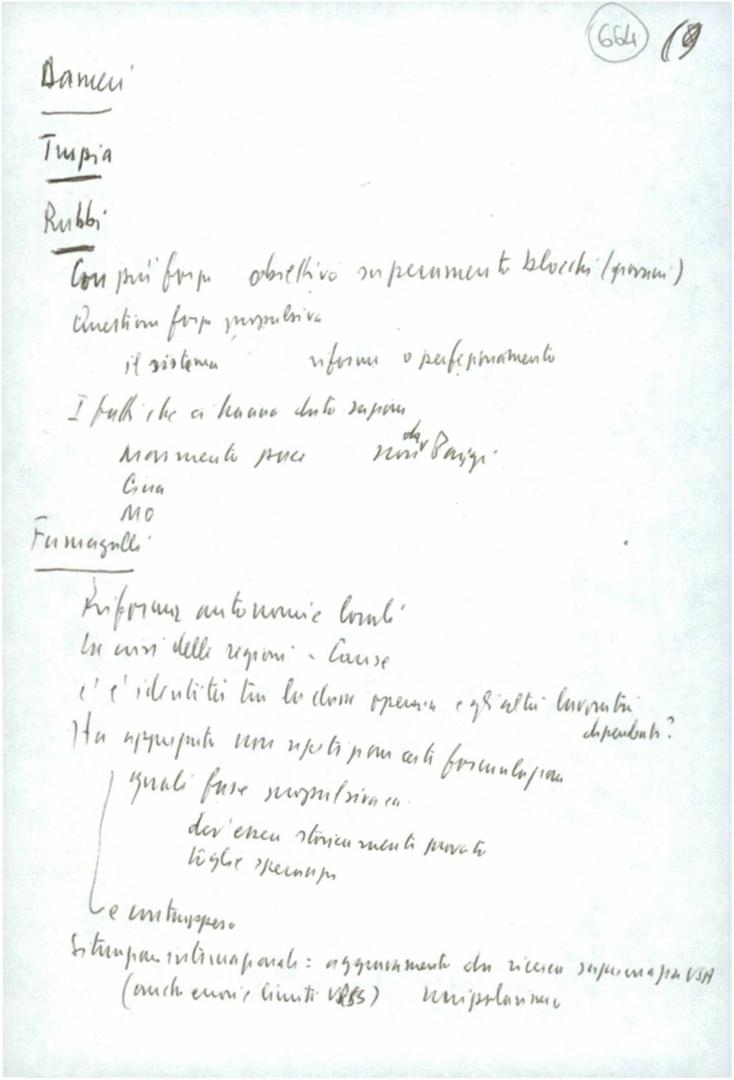 664 19
Dameri
Trupia
Rubbi
Con più forza obiettivo superamento blocchi (giovani)
Questione forza propulsiva
il sistema riforma o perfezionamento
I fatti che ci hanno dato ragione
Movimento pace non da Parigi
Cina
MO
Fumagalli
Riforma autonomie locali
La crisi delle regioni - Cause
c'è identità tra la classe operaia e gli altri lavoratori
dipendenti?
Ha apprezzato non ripetizione certi formulazioni
quali fase propulsiva ecc.
dev'essere storicamente provato
toglie speranza
e contrapposo
Situazione internazionale: aggravamento da ricerca supremazia USA
(anche errori e limiti URSS) unipolarismo